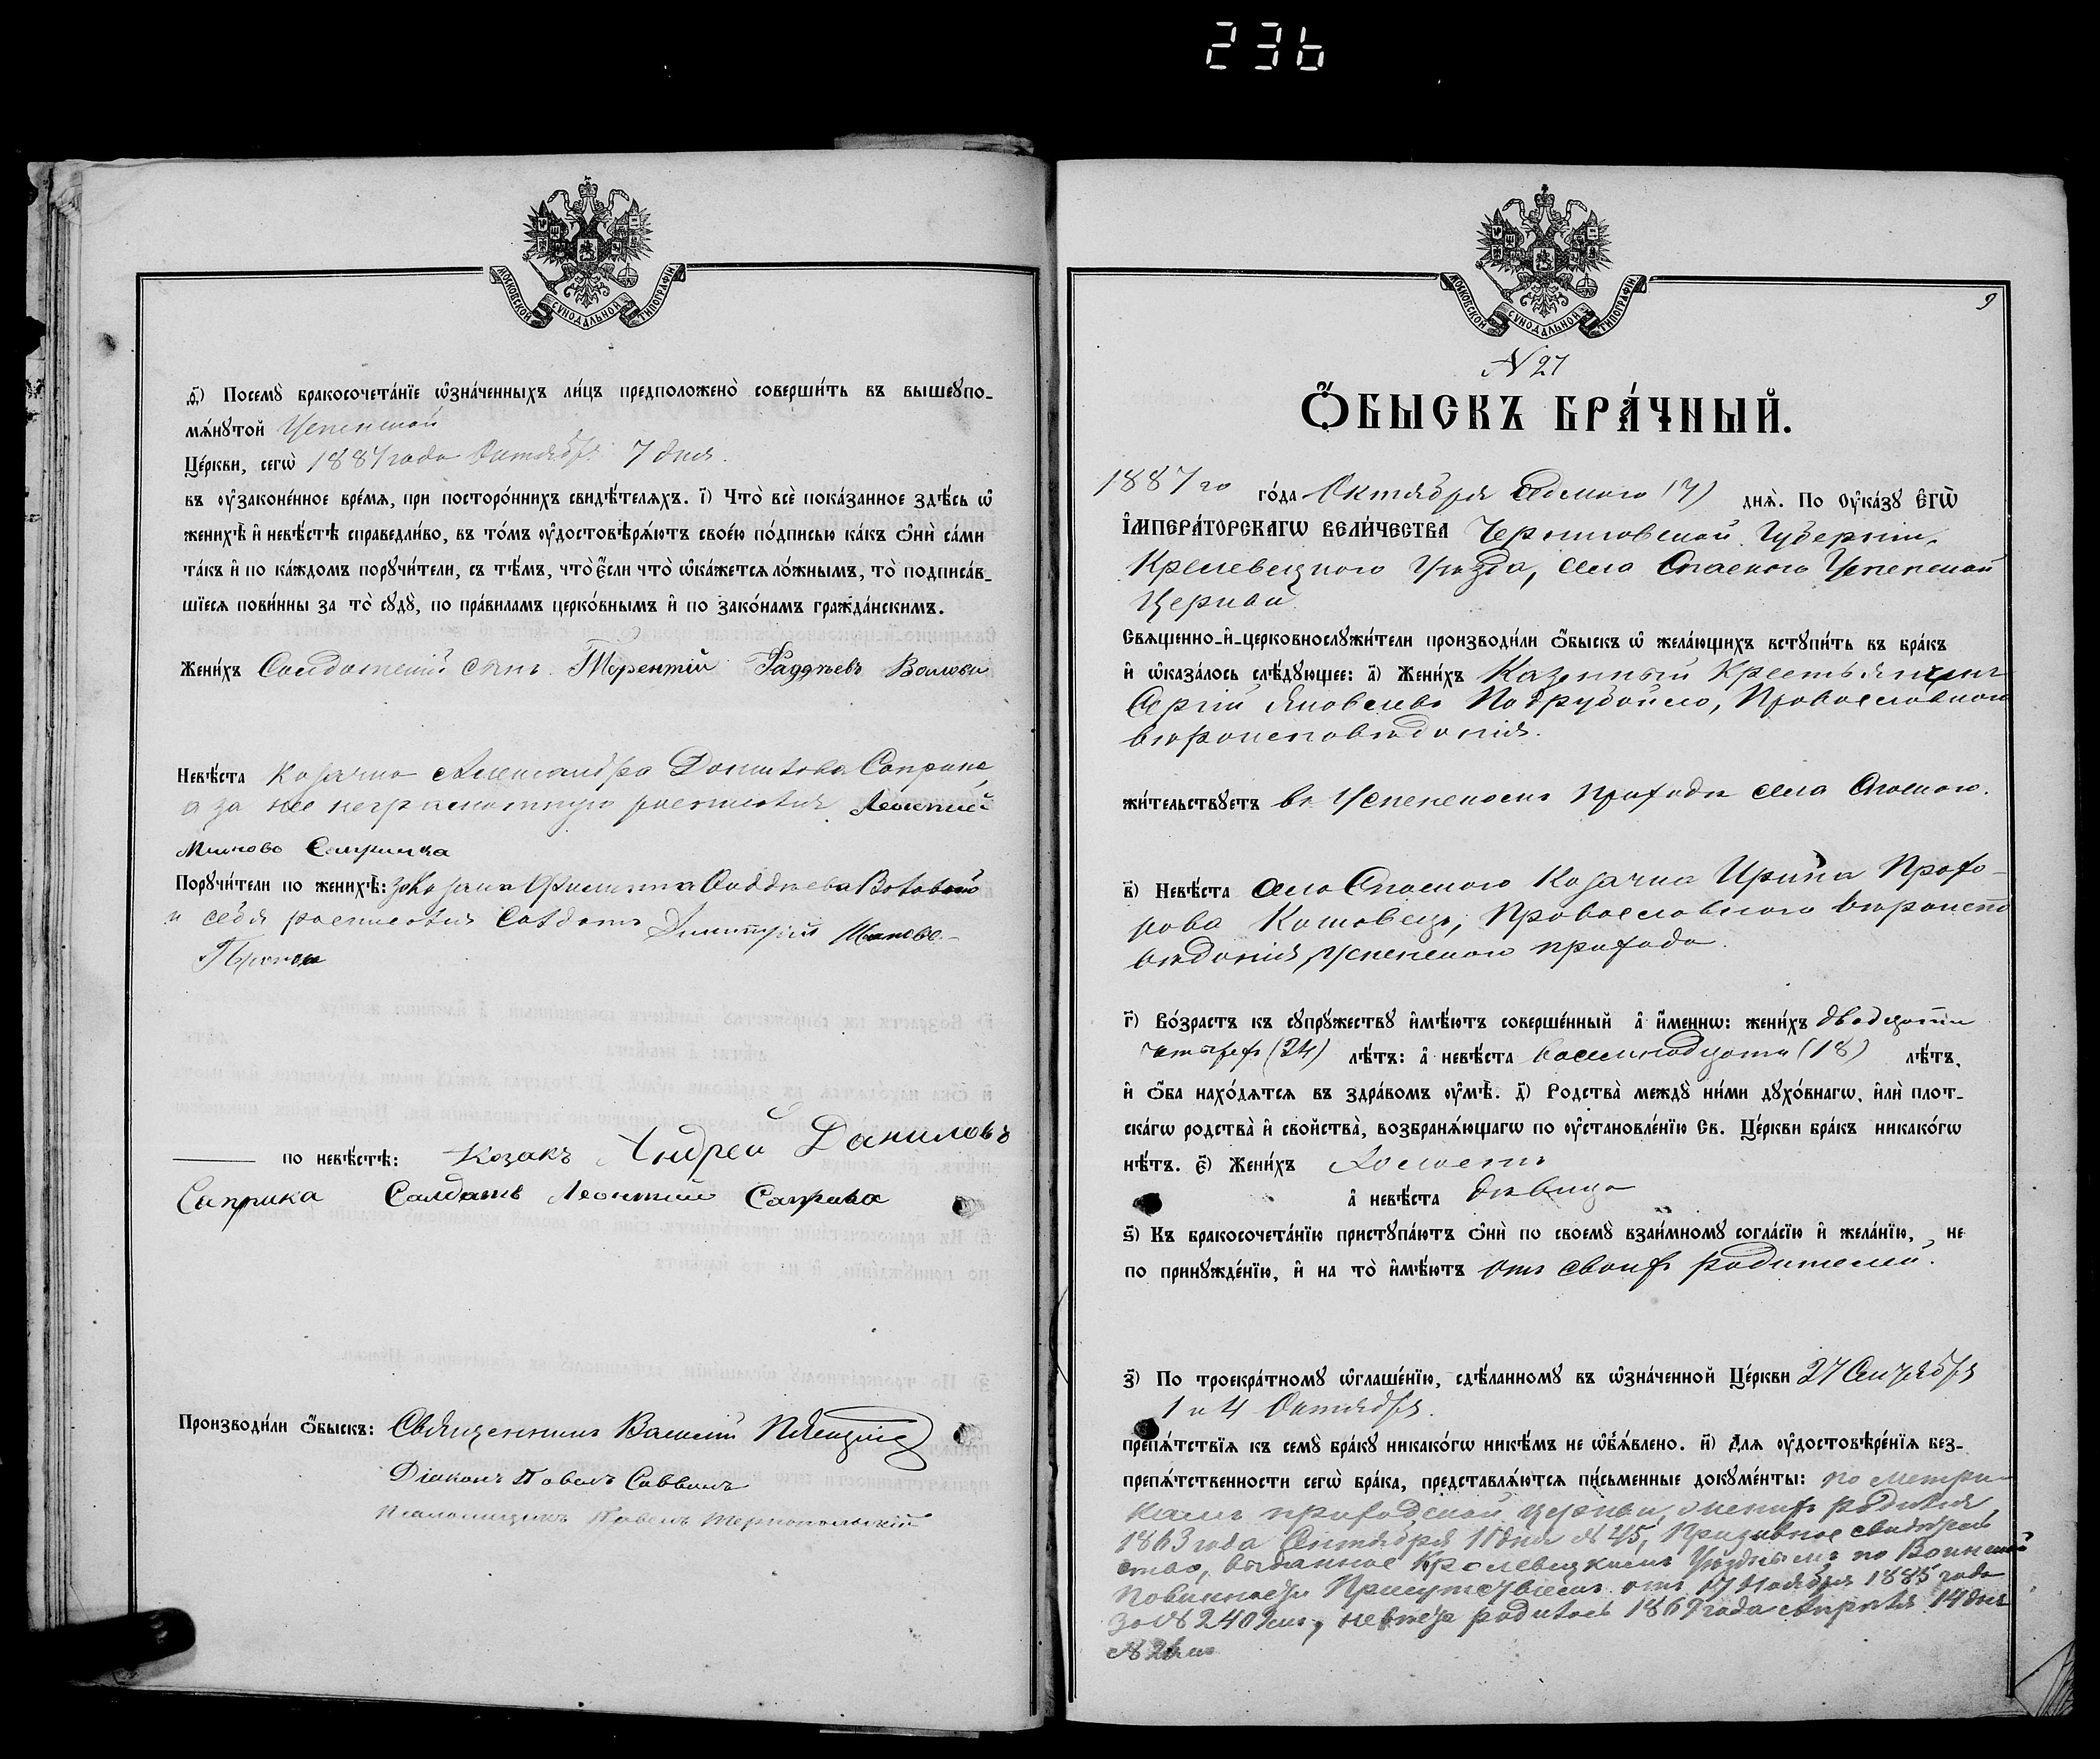 236
МОСКОВСКОЙ СѴНОДАЛЬНОЙ ТИПОГРАФІИ
д҃) Посемꙋ̀ бракосочета́нїе ѡ҆зна́ченныхъ ли́цъ предположено̀ соверши́ть въ вышеꙋпо-
мѧ́нꙋтой Успенской
Це́ркви, сегѡ̀ 1887 года Октября 7 дня
въ ᲂу҆законе́нное вре́мѧ, при посторо́ннихъ свидѣ́телѧхъ. і҃) Что̀ всѐ пока́занное здѣ́сь ѡ҆
женихѣ̀ и҆ невѣ́стѣ справедли́во, въ то́мъ ᲂу҆достовѣрѧ́ютъ свое́ю по́дписью ка́къ ѻ҆нѝ са́ми
та́къ и҆ по ка́ждомъ порꙋчи́тели, съ тѣ́мъ, что̀ є҆́сли что̀ ѡ҆ка́жетсѧ ло́жнымъ, то̀ подписа́в-
шїесѧ пови́нны за то̀ сꙋдꙋ̀, по пра́виламъ церко́внымъ и҆ по зако́намъ гражда́нскимъ.
Жени́хъ Солдатский сынъ Терентій Фаддѣевъ
Невѣ́ста Козачка Александра Данилова Саприка,
а за нее неграмотную росписался Леонтий
Саприка
Порꙋчи́тели по женихѣ̀: за Козака Филиппа Фаддѣева
и себя росписался Солдатъ Димитрій
по невѣ́стѣ: Козакъ Андрей Даниловъ
Саприка Салдатъ Леонтий Саприка
Производи́ли ѻ҆́быскъ: Священникъ Василій
Діаконъ Павелъ Саввичъ
Псаломщикъ Павелъ Тернопольскій
МОСКОВСКОЙ СѴНОДАЛЬНОЙ ТИПОГРАФІИ
9
N 27
Ѻ҆́БЫСКЪ БРА́ЧНЫЙ.
1887 го го́да Октября седмого (7) днѧ̀. По ᲂу҆ка́зꙋ є҆гѡ̀
і҆мпера́торскагѡ вели́чества Черниговской Губерніи,
Кролевецкого Уѣзда, села Спаского Успенской
Церкви
Свѧщенно-и҆-церковнослꙋжи́тели производи́ли ѻ҆́быскъ ѡ҆ жела́ющихъ встꙋпи́ть въ бра́къ
и҆ ѡ҆каза́лось слѣ́дꙋющее: а҃) Жени́хъ Казенный Крестьянинъ
Сергій Яковлевъ Православного
вѣроисповѣданія.
жи́тельствꙋетъ въ Успенскомъ приходѣ села Спаского.
в҃) Невѣ́ста села Спаского Козачка Ирина Прохо-
рова Православного вѣроиспо
вѣданія, Успенского прихода.
г҃) Во́зрастъ къ сꙋпрꙋ́жествꙋ и҆мѣ́ютъ соверше́нный а҆ и҆́меннѡ: жени́хъ двадцати
четырех (24) лѣ́тъ: а҆ невѣ́ста восемнадцати (18) лѣ́тъ,
и҆ ѻ҆́ба нахо́дѧтсѧ въ здра́вомъ ᲂу҆мѣ̀. д҃) Родства̀ междꙋ̀ ни́ми дꙋхо́внагѡ, и҆лѝ плот-
ска́гѡ родства̀ и҆ сво́йства̀, возбранѧ́ющагѡ по ᲂу҆становле́нїю Св. Це́ркви бра́къ никако́гѡ
нѣ́тъ. є҃) Жени́хъ Холостъ
а҆ невѣ́ста дѣвица
ѕ҃) Къ бракосочета́нїю пристꙋпа́ютъ ѻ҆нѝ по своемꙋ̀ взаи́мномꙋ согла́сїю и҆ жела́нїю, не
по принꙋжде́нїю, и҆ на то̀ и҆мѣ́ютъ отъ своихъ родителей.
з҃) По троекра́тномꙋ ѡ҆глаше́нїю, сдѣ́ланномꙋ въ ѡ҆зна́ченной Це́ркви 27 Сентября
1 и 4 Октября.
препѧ́тствїѧ къ семꙋ̀ бра́кꙋ никако́гѡ никѣ́мъ не ѡ҆б̾ѧ́влено. и҃) Длѧ ᲂу҆достовѣре́нїѧ без-
препѧ́тственности сегѡ̀ бра́ка, представлѧ́ютсѧ пи́сьменные докꙋме́нты: по метри-
камъ приходской церкви, женихъ родился
1863 года Сентября 11 дня № 45, Призывное свидѣтель
ство, выданное Кролевецкимъ Уѣзднымъ по Воинской
Повинности Присутствіемъ отъ 17 Ноября 1885 года
за № 2402мъ, невѣста родилась 1869 года Апрѣля 14 дня